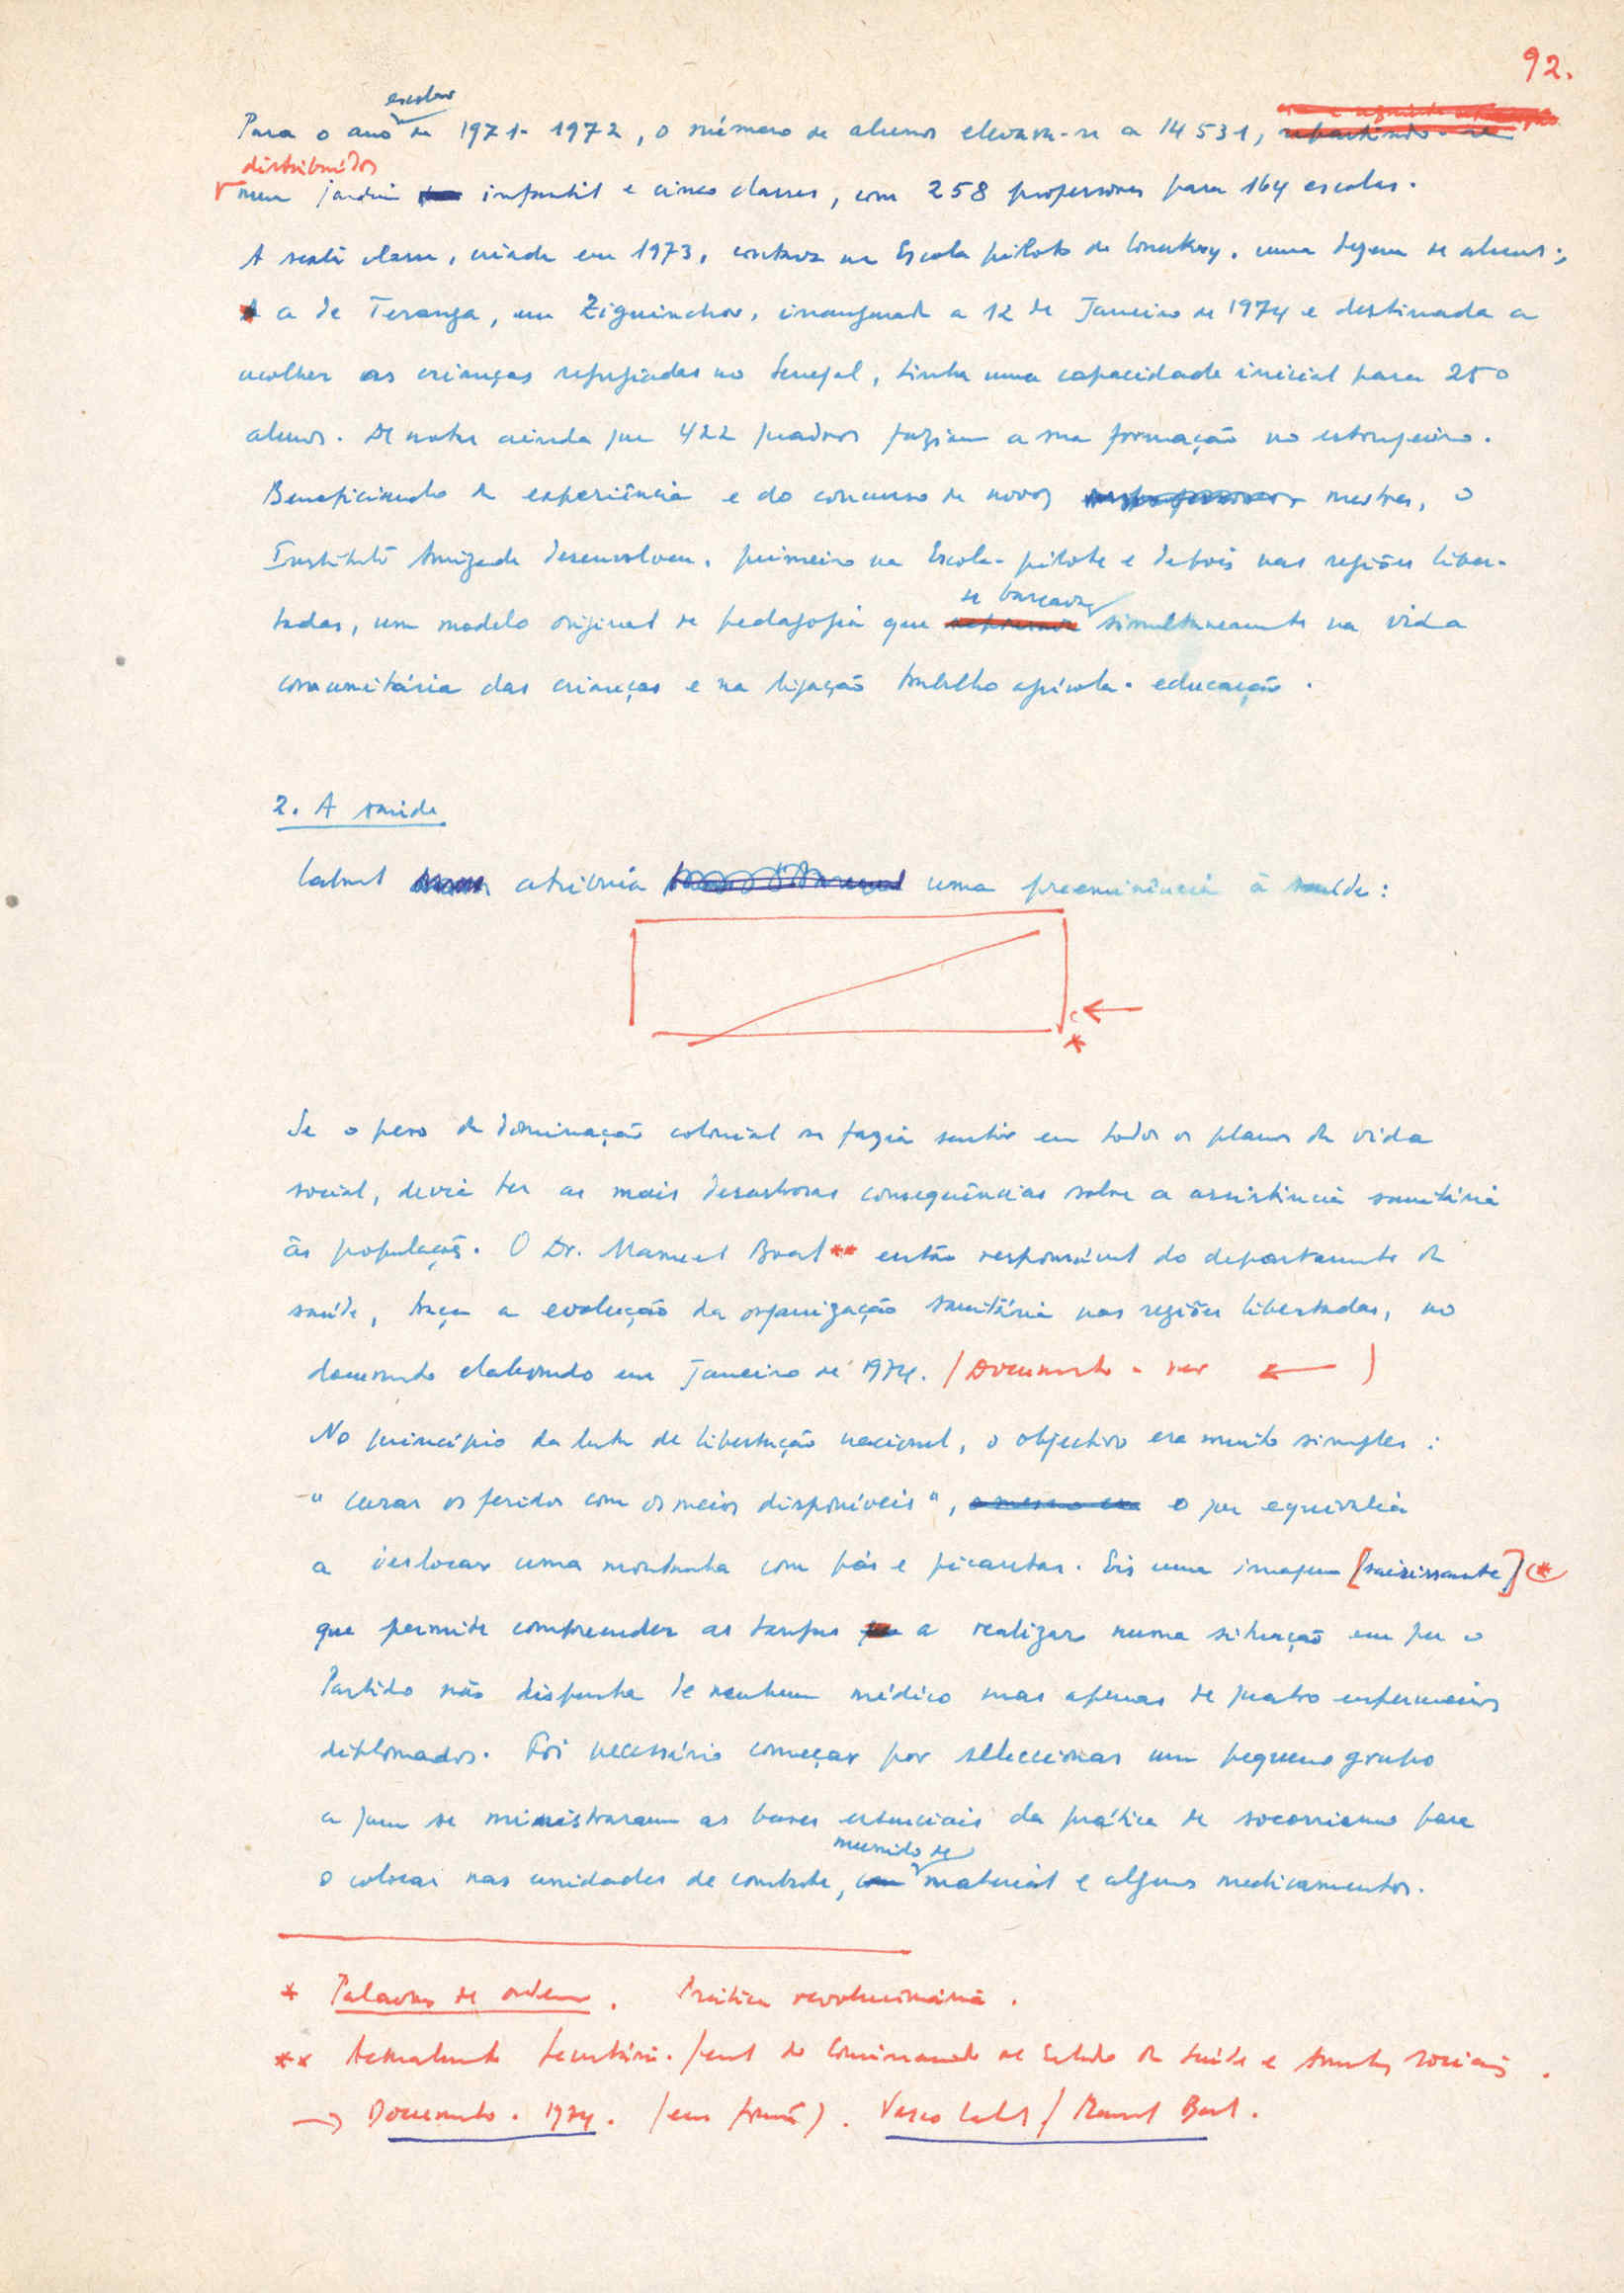 92.
escolar
Para o ano de 1971-1972, o número de alunos elevava-se a 14 531, repartindo-se
distribuídos
num jardim infantil e cinco classes, com 258 professores para 164 escolas.
A sexta classe, criada em 1973, contava na Escola piloto de Conakry, uma dezena de alunos;
a de Teranga, em Ziguinchor, inaugurada a 12 de Janeiro de 1974 e destinada a
acolher as crianças refugiadas no Senegal, tinha uma capacidade inicial para 250
alunos. De notar ainda que 422 quadros faziam a sua formação no estrangeiro.
Beneficiando da experiência e do concurso de novos mestres, o
Instituto Amizade desenvolveu, primeiro na Escola-piloto e depois nas regiões liber-
se baseava
tadas, um modelo original de pedagogia que simultaneamente na vida
comunitária das crianças e na ligação trabalho agrícola-educação.
2. A saúde
Cabral atribuía uma preeminência à saúde:
*
Se o peso da dominação colonial se fazia sentir em todos os planos da vida
social, devia ter as mais desastrosas consequências sobre a assistência sanitária
às populações. O Dr. Manuel Boal** então responsável do departamento da
saúde, traça a evolução da organização sanitária nas regiões libertadas, no
documento elaborado em Janeiro de 1974. (Documento a ver ← )
No princípio da luta de libertação nacional, o objectivo era muito simples:
"curar os feridos com os meios disponíveis", o mesmo era o que equivalia
a deslocar uma montanha com pás e picaretas. Eis uma imagem [saisissante] *
que permite compreender as tarefas a realizar numa situação em que o
Partido não dispunha de nenhum médico mas apenas de quatro enfermeiros
diplomados. Foi necessário começar por seleccionar um pequeno grupo
a quem se ministraram as bases essenciais da prática de socorrismo para
munido de
o colocar nas unidades de combate, com material e alguns medicamentos.
* Palavras de ordem. Prática revolucionária.
** Actualmente Secretário-geral do Comissariado de Estado da Saúde e Assuntos Sociais.
→ Documento. 1974. . Vasco Cabral / Manuel Boal.